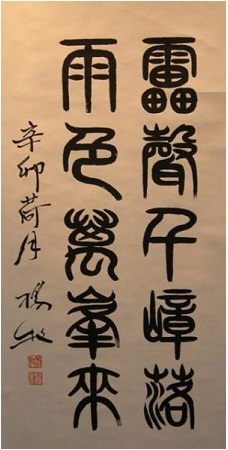 雷聲千嶂落
雨色萬峯來
辛卯荷月 楊